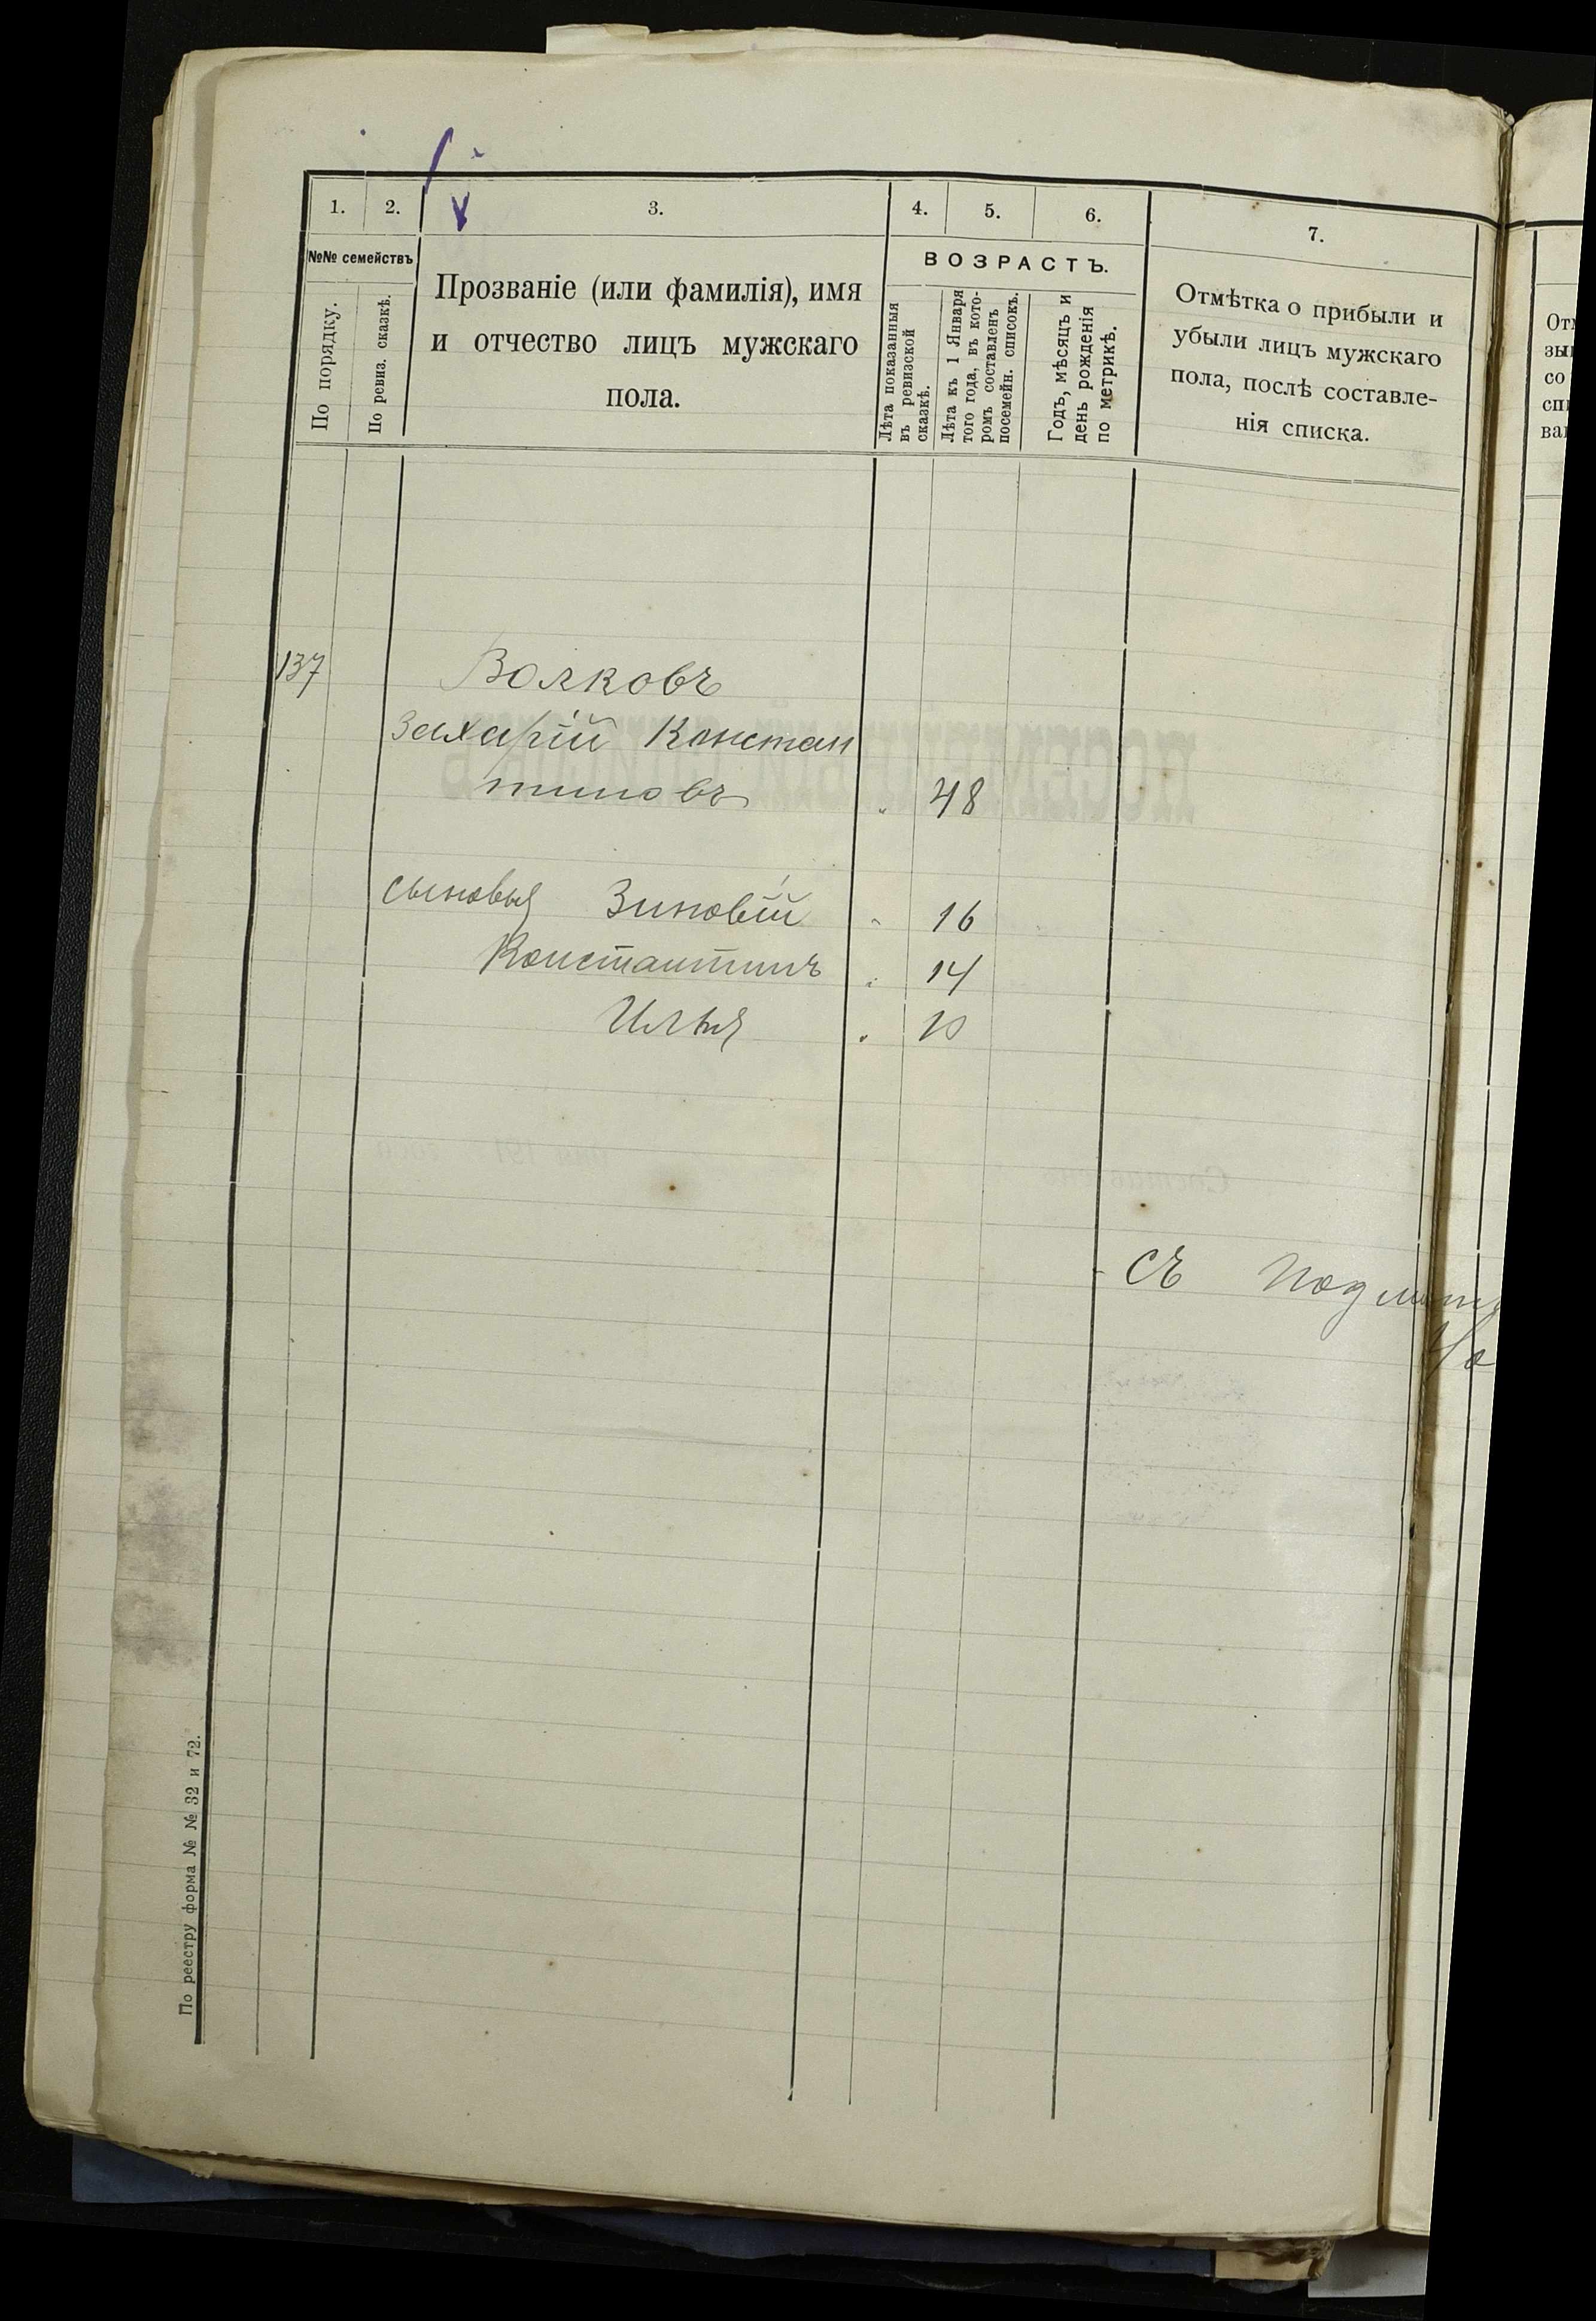 1. 2. 3. 4. 5. 6. 7.
№№ семействъ
По порядку.
По ревиз. сказкѣ.
Прозваніе (или фамилія), имя
и отчество лицъ мужскаго
пола.
ВОЗРАСТЪ.
Лѣта показанныя
въ ревизской
сказкѣ.
Лѣта къ 1 Января
того года, въ кото-
ромъ составленъ
посемейн. списокъ.
Годъ, мѣсяцъ и
день рожденія
по метрикѣ.
Отмѣтка о прибыли и
убыли лицъ мужскаго
пола, послѣ составле-
нія списка.
От
зы
со
сп
ва
137 Волковъ
Захарій Констан
тиновъ " 48
сыновья Зиновій " 16
Константинъ " 14
Илья " 10
Съ
По реестру форма № № 32 и 72.